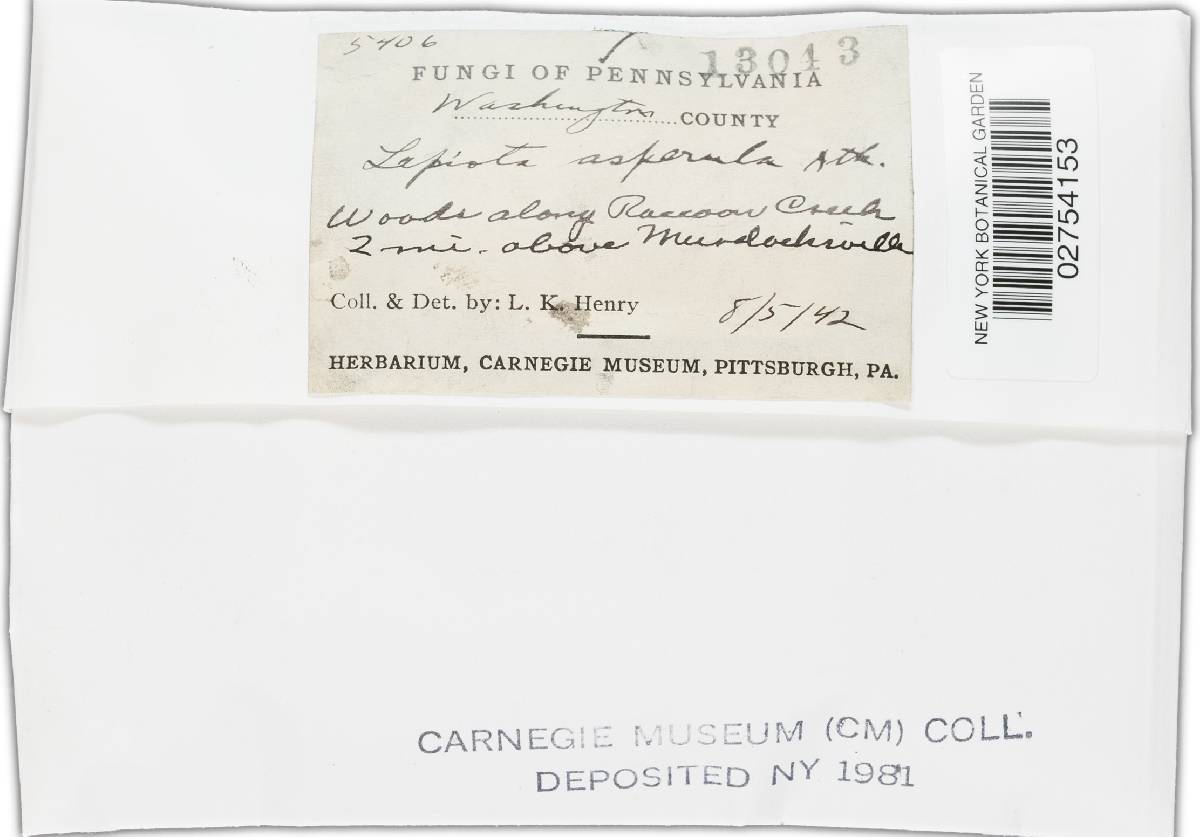 5406
13013
FUNGI OF PENNSYLVANIA
Washington COUNTY
Lepiota asperula Atk.
Woods along Raccoon Creek
2 mi. above Murdocksville
Coll. & Det. by: L. K. Henry 8/5/42
HERBARIUM, CARNEGIE MUSEUM, PITTSBURGH, PA.
NEW YORK BOTANICAL GARDEN
02754153
CARNEGIE MUSEUM (CM) COLL.
DEPOSITED NY 1981